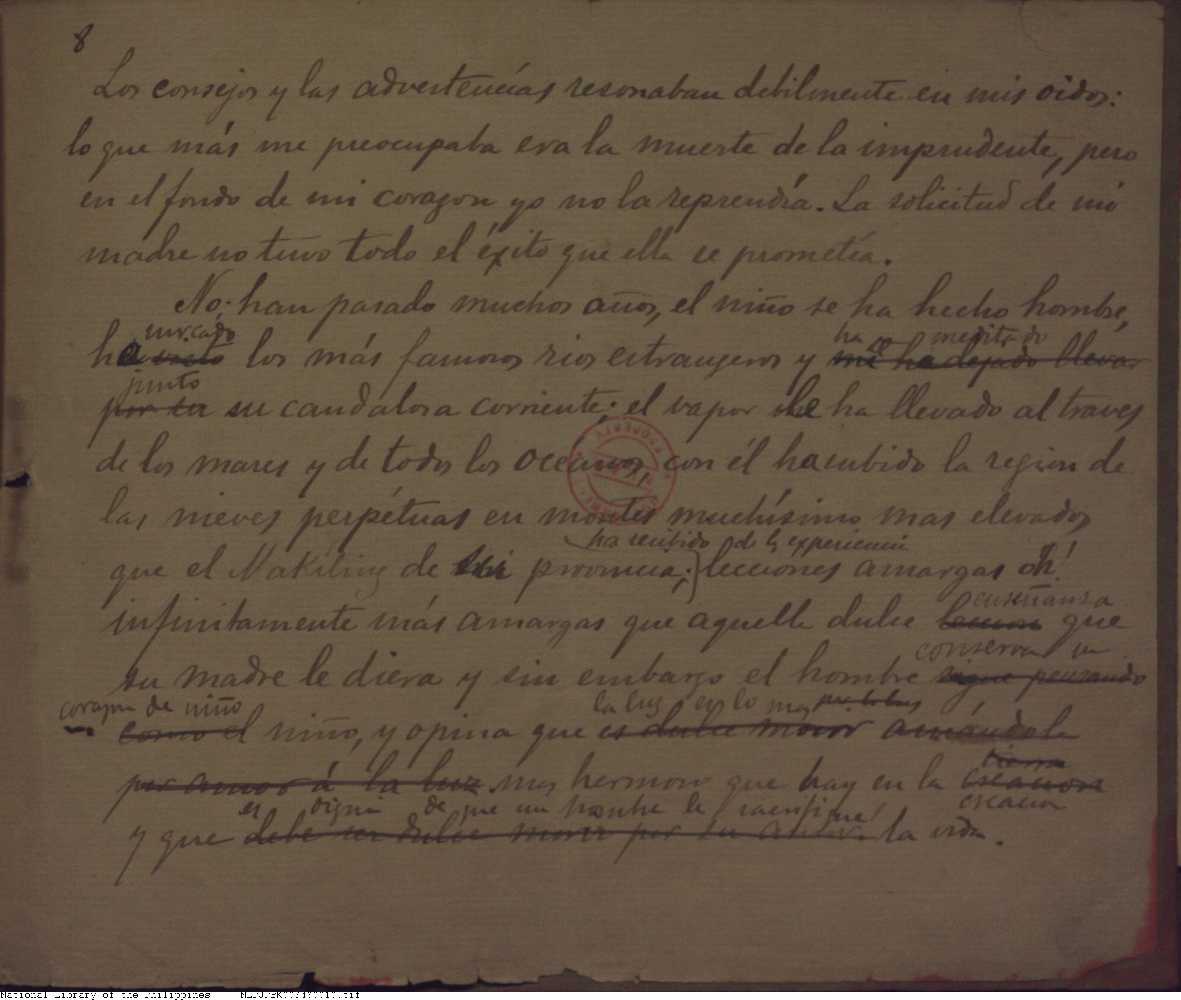 8
Los consejos y las advertencias resonaban debilmente en mis oidos:
lo que más me preocupaba era la muerte de la imprudente, pero
en el fondo de mi corazon yo no la reprendía. La solicitud de mi
madre no tuvo todo el éxito que ella se prometía.
No han pasado muchos años, el niño se ha hecho hombre,
surcado ha meditado
ha visto los más famosos rios estrangeros y me ha dejado llevar
junto
por su su caudalosa corriente; el vapor le ha llevado al traves
de los mares y de todos los oceanos, con él ha subido la region de
las nieves perpétuas en montes muchísimo mas elevados
ha recibido de la experiencia
que el Makiling de su provincia; lecciones amargas oh!
enseñanza
infinitamente más amargas que aquella dulce leccion que
conserva un
su madre le diera y sin embargo el hombre sigue pensando
corazon de niño la luz es lo mas
como el niño, y opina que es dulce morir amándola
tierra
por amor á la luz mas hermoso que hay en la creacion
creacion
es digna de que un hombre le sacrifique
y que debe ser dulce morir por su amor la vida.
National Library of the Philippines